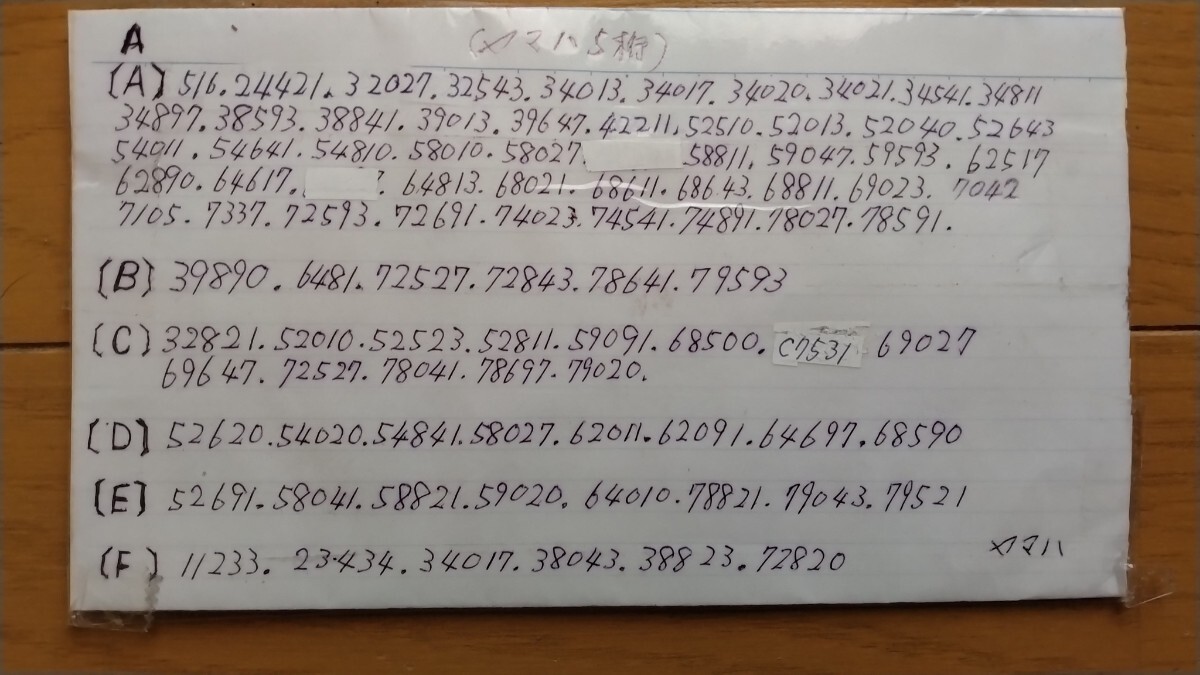 A (ヤマハ5桁)
(A) 516.24421.32027.32543.34013.34017.34020.34021.34541.34811
34897.38593.38841.39013.39647.42211.52510.52013.52040.52643
54011.54641.54810.58010.58027 58811.59047.59593.62517
62890.64617. 64813.68021.68611.68643.68811.69023.7042
7105.7337.72593.72691.74023.74541.74891.78027.78591.
(B) 39890.6481.72527.72843.78641.79593
(C) 32821.52010.52523.52811.59091.68500.C7531 69027
69647.72527.78041.78697.79020.
(D) 52620.54020.54841.58027.62011.62091.64697.68590
(E) 52691.58041.58821.59020.64010.78821.79043.79521
(F) 11233.23434.34017.38043.38823.72820
ヤマハ